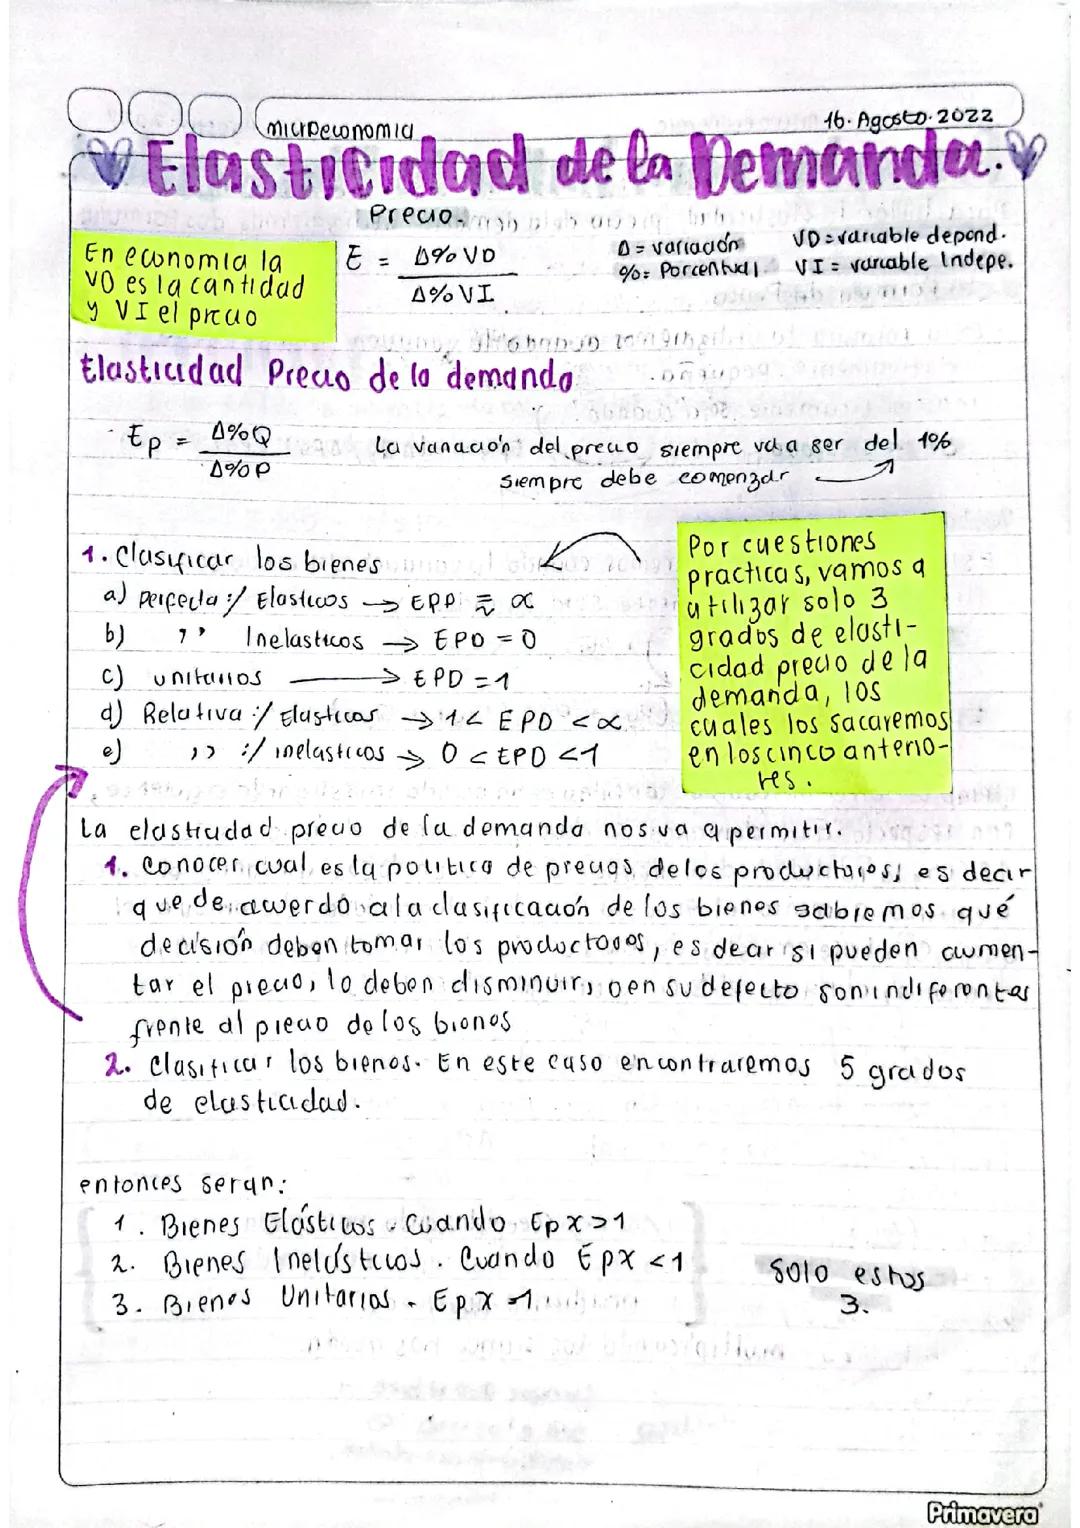 microeconomia
16. Agosto. 2022
Elasticidad de la Demanda.
Precio.
En economia la
VD es la cantidad
y VI el precio
E = Δ% VD
Δ% VI
Δ = variación
%= Porcentual.
VD = variable depend.
VI = variable Indepe.
Elasticidad Precio de la demanda
Ep = Δ%Q
Δ%P
La variación del precio siempre va a ser del 1%
siempre debe comenzar
1. Clasificar los bienes
a) perfecta :/ Elasticos → EPD = ∝
b) ,, Inelasticos → EPD = 0
c) unitarios → EPD = 1
d) Relativa :/ Elasticos → 1 < EPD < ∝
e) ,, :/ inelasticos → 0 < EPD < 1
Por cuestiones
practicas, vamos a
utilizar solo 3
grados de elasti-
cidad precio de la
demanda, los
cuales los sacaremos
en los cinco anterio-
res.
La elasticidad precio de la demanda nos va a permitir.
1. Conocer cual es la politica de precios de los productores, es decir
que de acuerdo a la clasificación de los bienes sabremos qué
decisión deben tomar los productores, es decir si pueden aumen-
tar el precio, lo deben disminuir, o en su defecto son indiferentes
frente al precio de los bienes
2. Clasificar los bienes. En este caso encontraremos 5 grados
de elasticidad.
entonces seran:
1. Bienes Elásticos. Cuando Epx > 1
2. Bienes Inelásticos. Cuando Epx < 1
3. Bienes Unitarios. Epx = 1
Solo estos
3.
Primavera